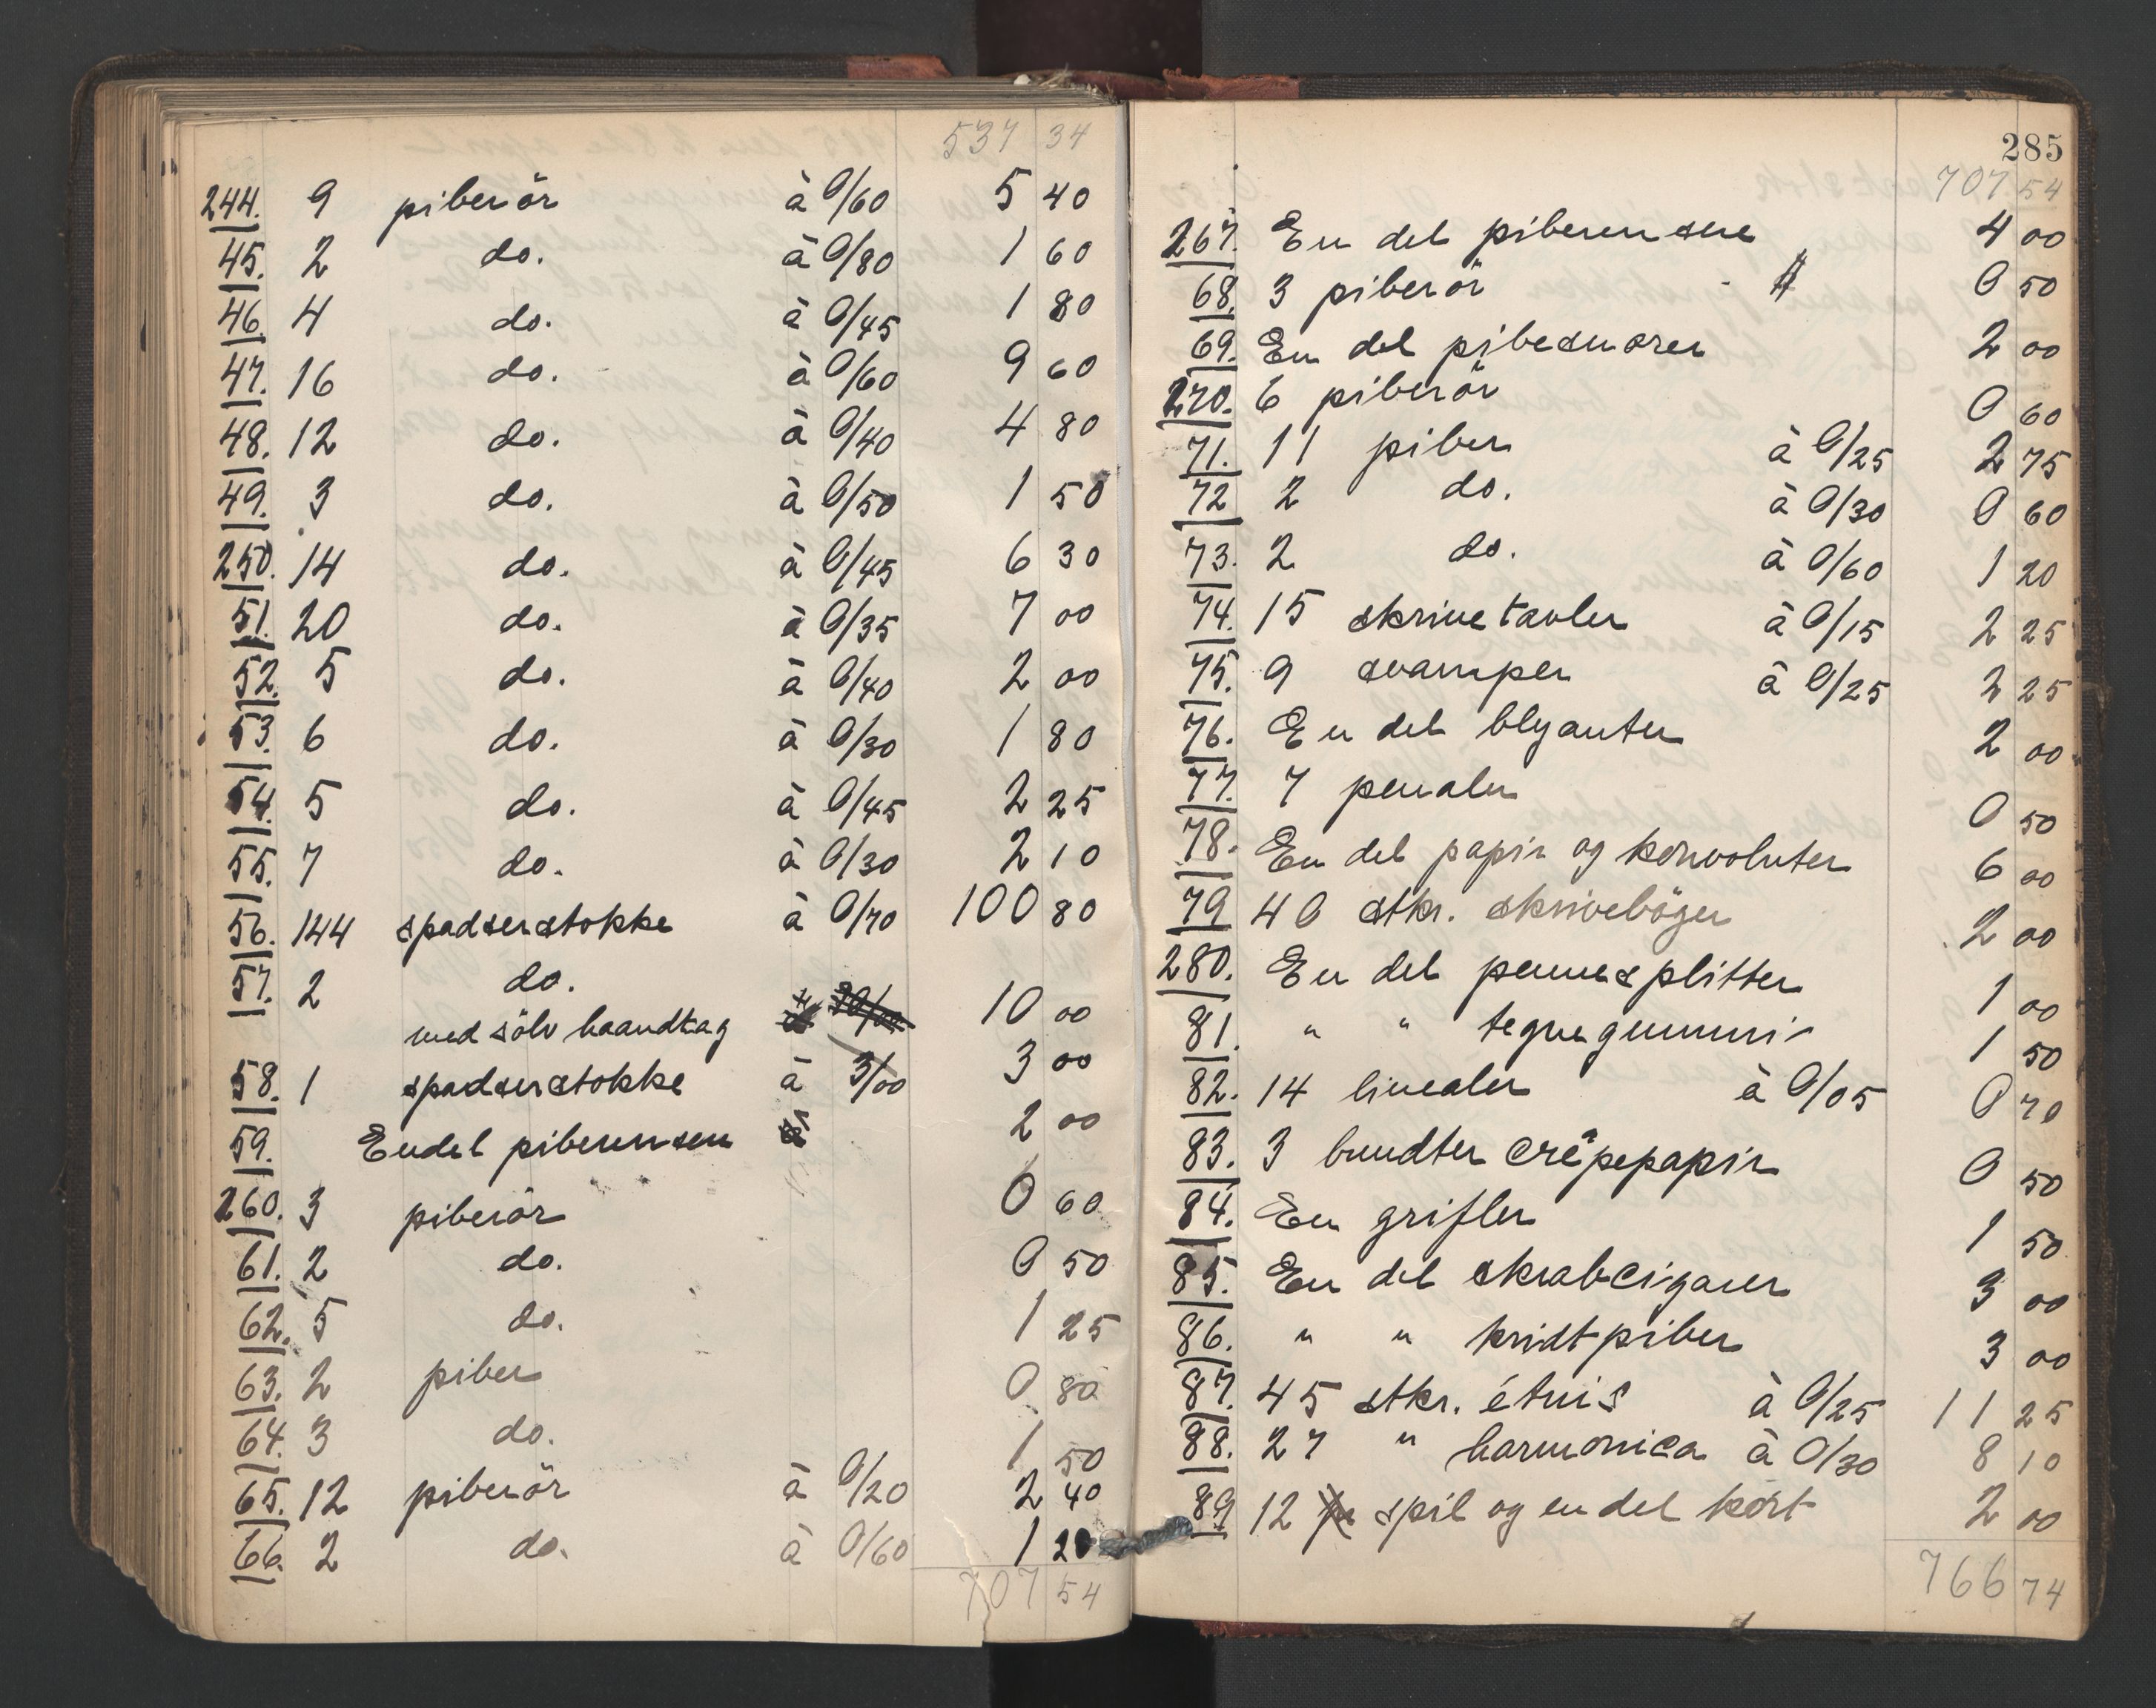 537 34
244. 9 piberör à 0/60 5 40
45. 2 do. à 0/80 1 60
46. 4 do. à 0/45 1 80
47. 16 do. à 0/60 9 60
48. 12 do. à 0/40 4 80
49. 3 do. à 0/50 1 50
250. 14 do. à 0/45 6 30
51. 20 do. à 0/35 7 00
52. 5 do. à 0/40 2 00
53. 6 do. à 0/30 1 80
54. 5 do. à 0/45 2 25
55. 7 do. à 0/30 2 10
56. 144 spadserstokke à 0/70 100 80
57. 2 do.
med sölv haandtag 10 00
58. 1 spadserstokke à 3/00 3 00
59. Endel piberensere 2 00
260. 3 piberör 0 60
61. 2 do. 0 50
62. 5 do. 1 25
63. 2 piber 0 80
64. 3 do. 1 50
65. 12 piberör à 0/20 2 40
66. 2 do. à 0/60 1 20
707 54
285
707 54
267. En del piberensere 4 00
68. 3 piberör 0 50
69. En del pibesnorer 2 00
270. 6 piberör 0 60
71. 11 piber à 0/25 2 75
72 2 do. à 0/30 0 60
73. 2 do. à 0/60 1 20
74. 15 skrivetavler à 0/15 2 25
75. 9 svamper à 0/25 2 25
76. En del blyanter 2 00
77. 7 penaler 0 50
78. En del papir og konvoluter 6 00
79 40 stkr. skriveböger 2 00
280. En del pennesplitter 1 00
81. " " tegnegummi 1 50
82. 14 linealer à 0/05 0 70
83. 3 bundter crêpepapir 0 50
84. En grifler 1 50
85. En del skrabcigarer 3 00
86. " " kridtpiber 3 00
87. 45 stkr. étuis à 0/25 11 25
88. 27 " harmonica à 0/30 8 10
89 12 spil og en del kort 2 00
766 74